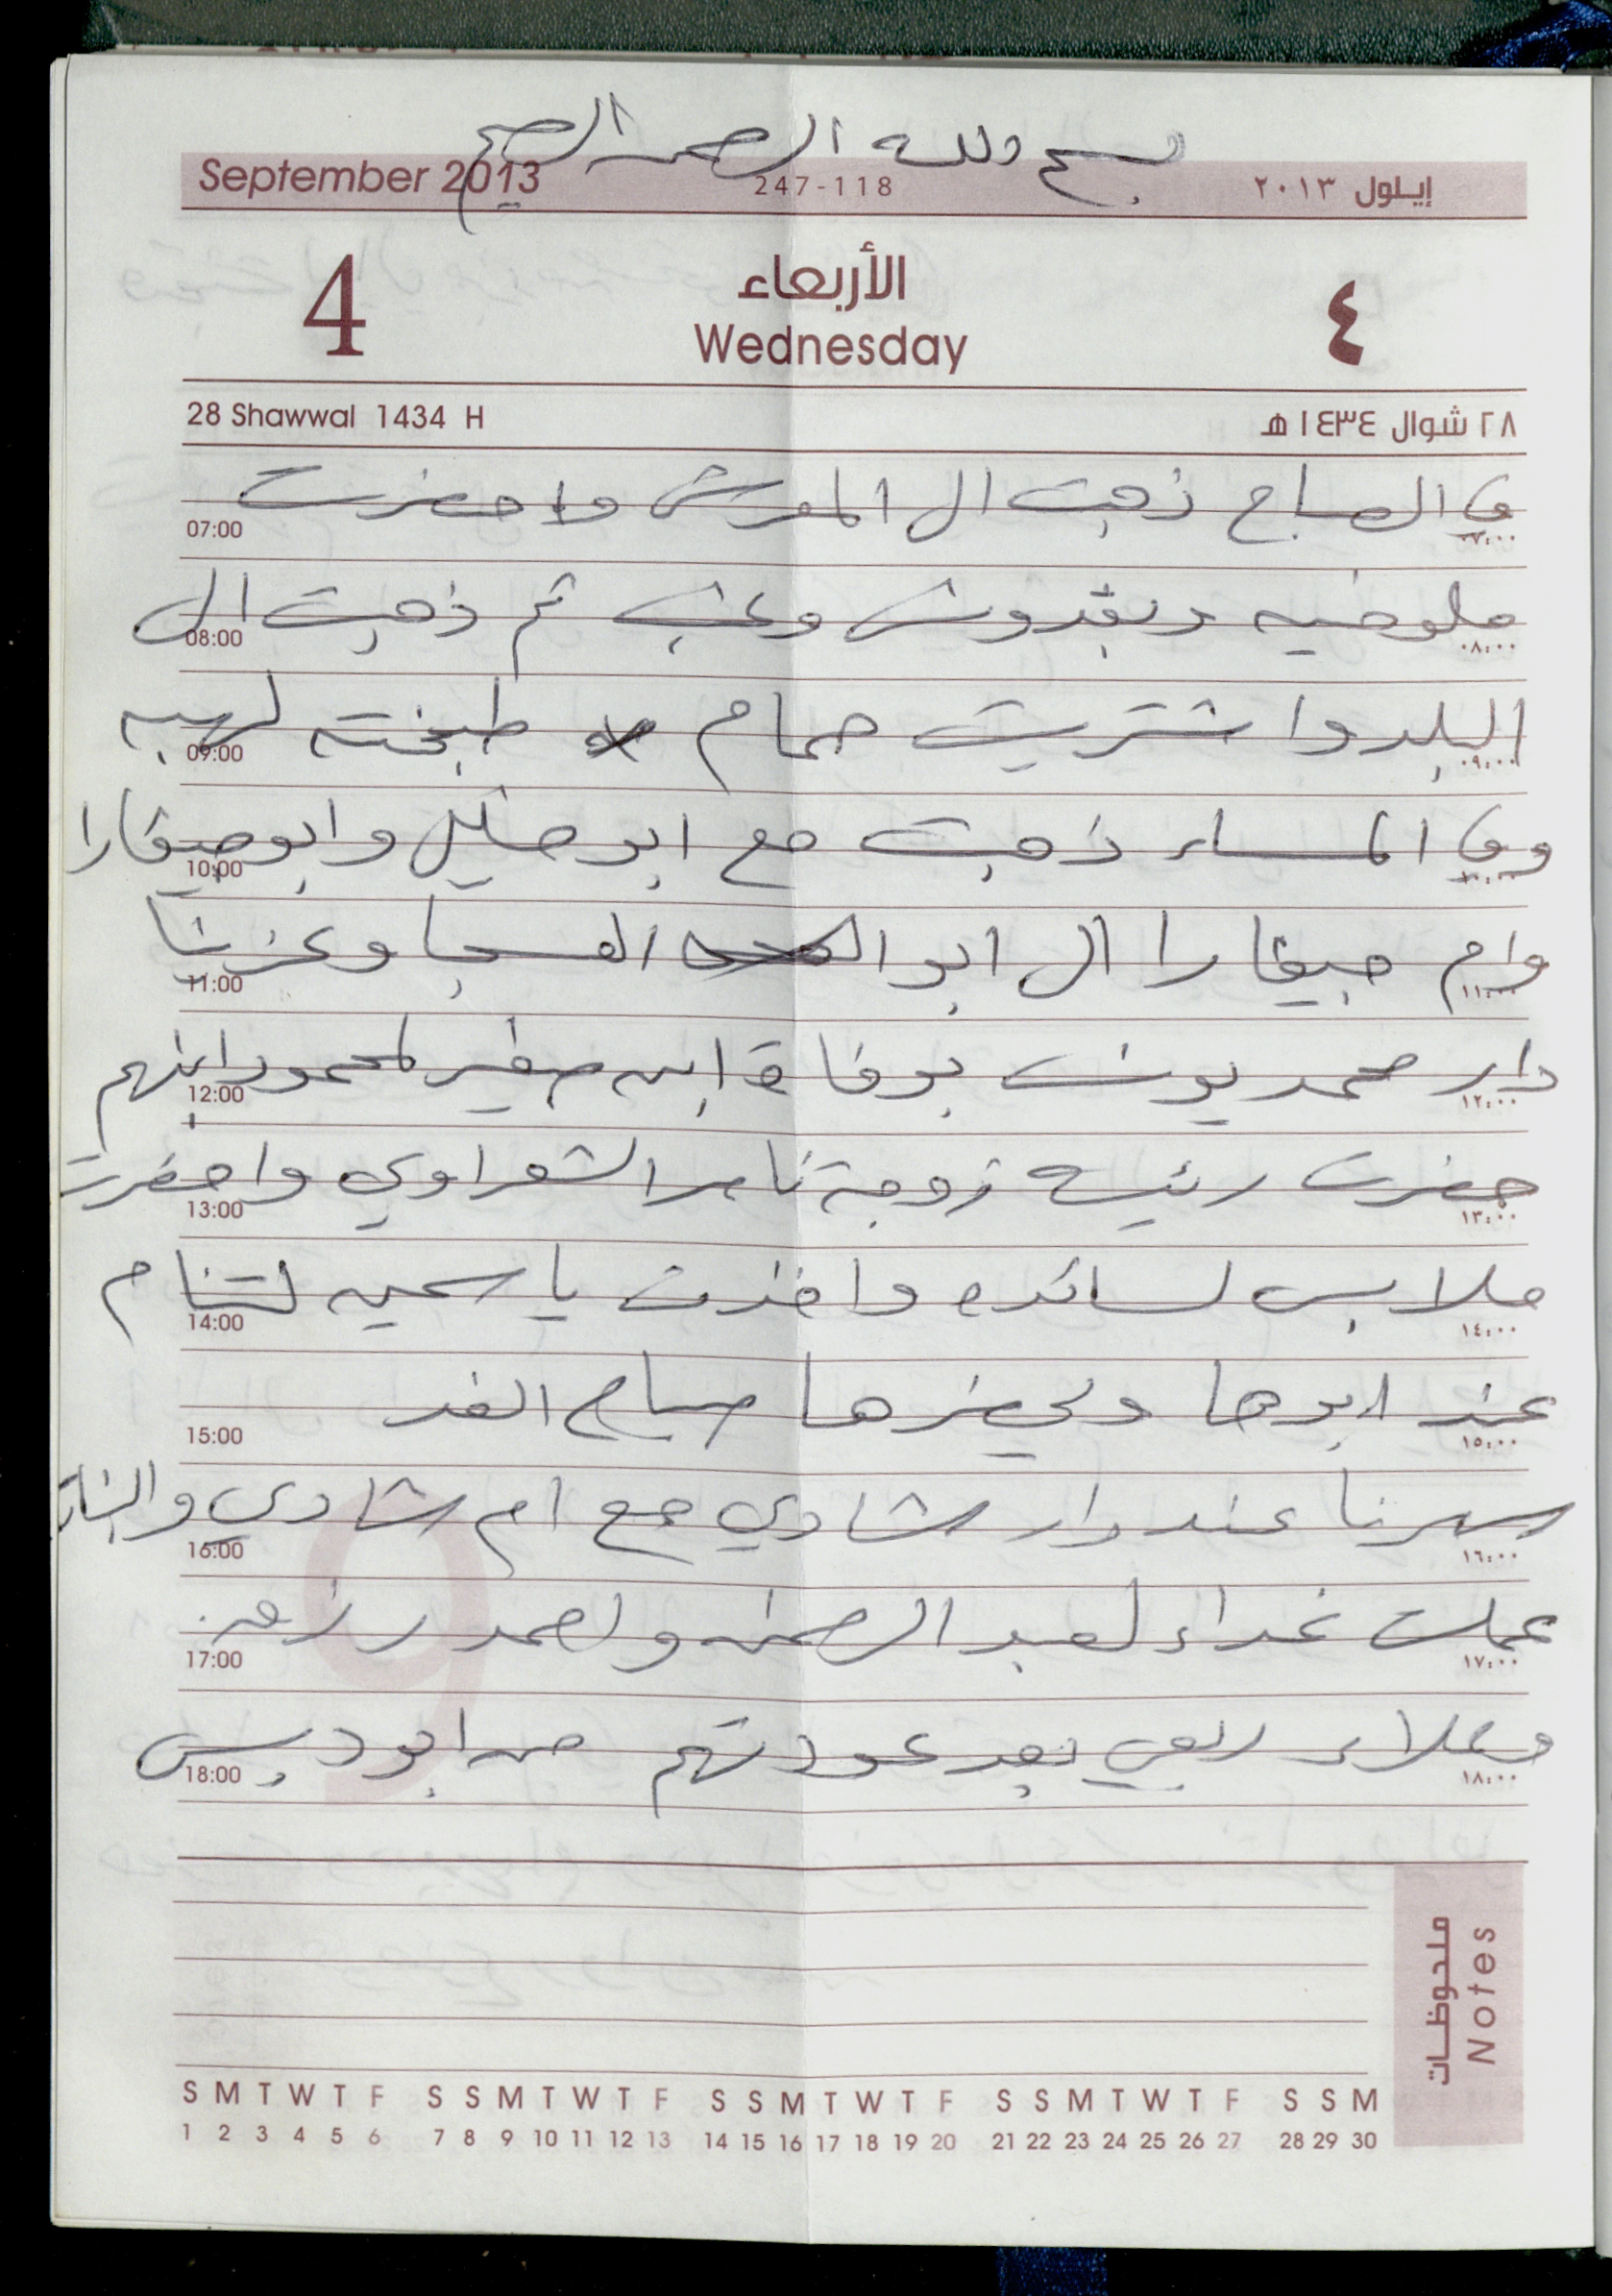 بسم الله الرحمن الرحيم
September 2013 247-118 إيلول ٢٠١٣
4 الأربعاء ٤
Wednesday
28 Shawwal 1434 H ٢٨ شوال ١٤٣٤ هـ
في الصباح ذهبت الى المفرش واحضرت
07:00 ٠٧:٠٠
ملوخيه وبقدونس وعنب ثم ذهبت الى
08:00 ٠٨:٠٠
البلد واشتريت حمام طبخته لهبه
09:00 ٠٩:٠٠
وفي المساء ذهبت مع ابو خليل وابو جيفارا
10:00 ١٠:٠٠
وام جيفارا الى ابو العسجا وعزينا
11:00 ١١:٠٠
دار محمد يونس بوفاة ابن صغير لمحمود ابنهم
12:00 ١٢:٠٠
حضرت رئيسه زوجة ثامر الشعراوي واحضرت
13:00 ١٣:٠٠
ملابس لسائده واخذت ياسمين لتنام
14:00 ١٤:٠٠
عند ابوها وتحضرها صباح الغد
15:00 ١٥:٠٠
سهرنا عند دار شادي مع ام شادي والبنات
16:00 ١٦:٠٠
عملت غداء لعبد الرحمن واحمد
17:00 ١٧:٠٠
وعلاء ربعي بعد عودتهم من ابو ديس
18:00 ١٨:٠٠
ملحوظات
Notes
S M T W T F S S M T W T F S S M T W T F S S M T W T F S S M
1 2 3 4 5 6 7 8 9 10 11 12 13 14 15 16 17 18 19 20 21 22 23 24 25 26 27 28 29 30